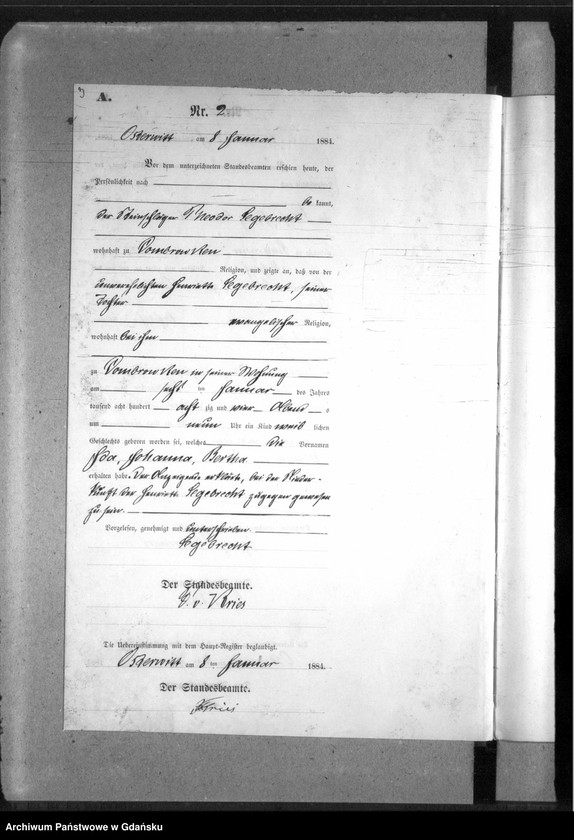 A.
Nr. 2
Osterwitt am 8 Januar 1884.
Vor dem unterzeichneten Standesbeamten erschien heute, der
Persönlichkeit nach
be kannt,
der Steinschläger Theodor Segebrecht
wohnhaft zu Dombrowken
Religion, und zeigte an, daß von der
unverehelichten Henriette Segebrecht, seiner
Tochter
evangelischer Religion,
wohnhaft bei ihm
zu Dombrowken in seiner Wohnung
am ten Januar des Jahres
tausend acht hundert acht zig und vier Abend s
um neun Uhr ein Kind weib lichen
Geschlechts geboren worden sei, welches die Vornamen
Ida, Johanna, Bertha
erhalten habe. Der Anzeigende erklärte, bei der Nieder-
kunft der Henriette Segebrecht zugegen gewesen
zu sein.
Vorgelesen, genehmigt und unterschrieben
Segebrecht
Der Standesbeamte.
v. Kries
Die Uebereinstimmung mit dem Haupt-Register beglaubigt.
Osterwitt am 8 ten Januar 1884.
Der Standesbeamte.
vKries
Archiwum Państwowe w Gdańsku